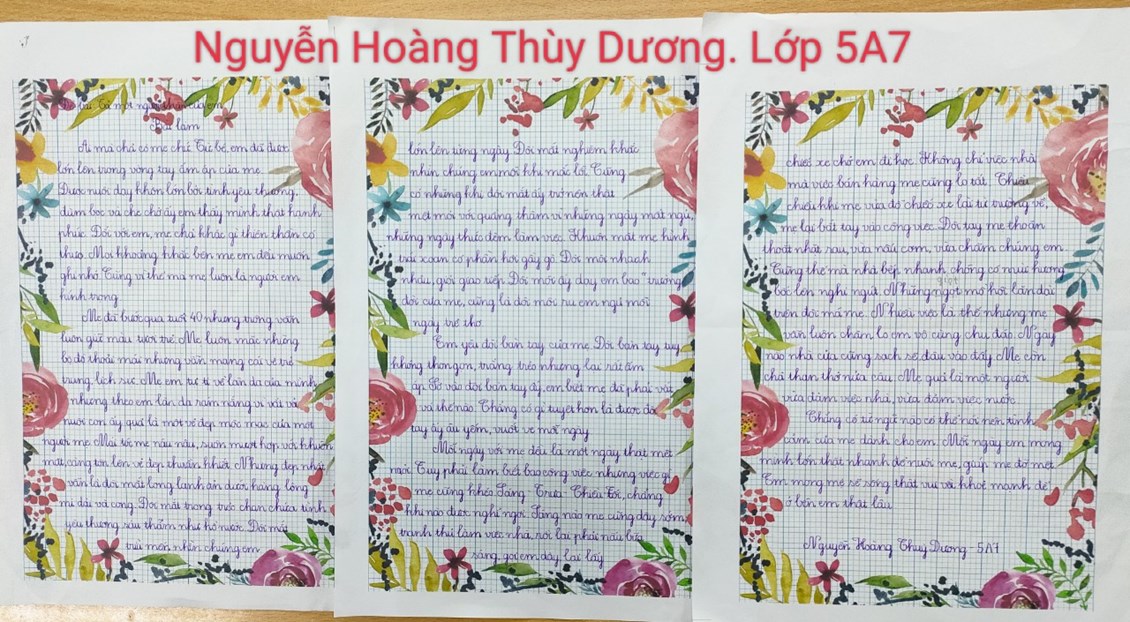 Nguyễn Hoàng Thùy Dương. Lớp 5A7
Đề bài: Tả một người thân của em
Bài làm
Ai mà chả có mẹ chứ. Từ bé, em đã được
lớn lên trong vòng tay ấm áp của mẹ.
Được nuôi dạy khôn lớn bởi tình yêu thương,
đùm bọc và che chở ấy em thấy mình thật hạnh
phúc. Đối với em, mẹ chả khác gì thiên thần có
thực. Mọi khoảng khắc bên mẹ em đều muốn
ghi nhớ. Cũng vì thế mà mẹ luôn là người em
kính trọng.
Mẹ đã bước qua tuổi 40 nhưng trông vẫn
luôn giữ màu tươi trẻ. Mẹ luôn mặc những
bộ đồ thoải mái nhưng vẫn mang cái vẻ trẻ
trung, lịch sự. Mẹ em tự ti về làn da của mình
nhưng theo em làn da rám nắng vì vất vả
nuôi con ấy quả là một vẻ đẹp mộc mạc của một
người mẹ. Mái tóc mẹ nâu nâu, suôn mượt hợp với khuôn
mặt, càng tôn lên vẻ đẹp thuần khiết. Nhưng đẹp nhất
vẫn là đôi mắt long lanh ẩn dưới hàng lông
mi dài và cong. Đôi mắt trong trẻo chan chứa tình
yêu thương sâu thẳm như hồ nước. Đôi mắt
trìu mến nhìn chúng em
lớn lên từng ngày. Đôi mắt nghiêm khắc
nhìn chúng em mỗi khi mắc lỗi. Cũng
có những khi đôi mắt ấy trở nên thật
mệt mỏi với quầng thâm vì những ngày mất ngủ,
những ngày thức đêm làm việc. Khuôn mặt mẹ hình
trái xoan có phần hơi gầy gò. Đôi môi nhanh
nhảu, giỏi giao tiếp. Đôi môi ấy dạy em bao "trường
đời của mẹ, cũng là đôi môi ru em ngủ mỗi
ngày trẻ thơ.
Em yêu đôi bàn tay của mẹ. Đôi bàn tay tuy
không thon gọn, trắng trẻo nhưng lại rất ấm
áp. Sờ vào đôi bàn tay ấy, em biết mẹ đã phải vất
vả thế nào. Chẳng có gì tuyệt hơn là được đôi
tay ấy âu yếm, vuốt ve mỗi ngày.
Mỗi ngày với mẹ đều là một ngày thật mệt
mỏi. Tuy phải làm biết bao công việc nhưng việc gì
mẹ cũng khéo. Sáng - Trưa - Chiều - Tối, chẳng
khi nào được nghỉ ngơi. Sáng nào mẹ cũng dậy sớm,
tranh thủ làm việc nhà, rồi lại phải nấu bữa
sáng, gọi em dậy, lại lấy
chiếc xe chở em đi học. Không chỉ việc nhà
mà việc bán hàng mẹ cũng lo tất. Chiều
chiều khi mẹ vừa đỗ chiếc xe lại từ trường về,
mẹ lại bắt tay vào công việc. Đôi tay mẹ thoăn
thoắt nhặt rau, vừa nấu cơm, vừa chăm chúng em.
Cũng thế mà nhà bếp nhanh chóng có mùi hương
bốc lên nghi ngút. Những giọt mồ hôi lăn dài
trên đôi má mẹ. Nhiều việc là thế nhưng mẹ
vẫn luôn chăm, lo em vô cùng chu đáo. Ngày
nào nhà cửa cũng sạch sẽ đâu vào đấy. Mẹ còn
chả than thở nửa câu. Mẹ quả là một người
vừa đảm việc nhà, vừa đảm việc nước.
Chẳng có từ ngữ nào có thể nói nên tình
cảm của mẹ dành cho em. Mỗi ngày em mong
mình lớn thật nhanh để nuôi mẹ, giúp mẹ đỡ mệt.
Em mong mẹ sẽ sống thật vui và khoẻ mạnh để
ở bên em thật lâu.
Nguyễn Hoàng Thuỳ Dương - 5A7